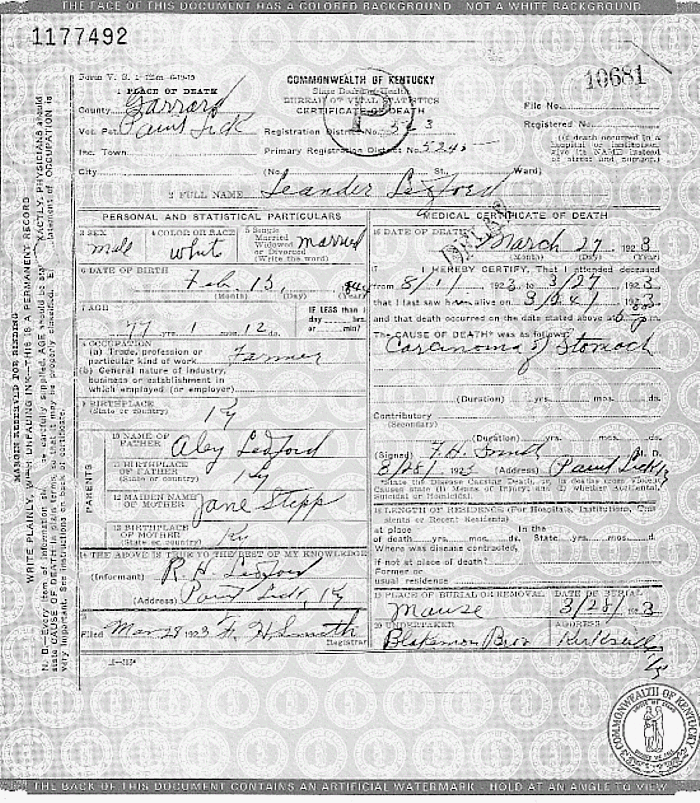 THE FACE OF THIS DOCUMENT HAS A COLORED BACKGROUND NOT A WHITE BACKGROUND
1177492
Form V. S. 1
COMMONWEALTH OF KENTUCKY
State Board of Health
BUREAU OF VITAL STATISTICS
CERTIFICATE OF DEATH
10681
1 PLACE OF DEATH
County Garrard
Vot. Pct. Paint Lick
Registration District No. 523
File No.
Registered No.
Inc. Town
Primary Registration District No. 5245
(If death occurred in a hospital or institution, give its NAME instead of street and number.)
City (No. St., Ward)
2 FULL NAME Leander Ledford
PERSONAL AND STATISTICAL PARTICULARS
3 SEX male
4 COLOR OR RACE white
5 Single Married Widowed or Divorced (Write the word) married
6 DATE OF BIRTH Feb. 15, 184
(Month) (Day) (Year)
7 AGE 77 yrs. 1 mos. 12 ds.
IF LESS than 1 day hrs. or min.?
8 OCCUPATION
(a) Trade, profession or particular kind of work Farmer
(b) General nature of industry, business or establishment in which employed (or employer)
9 BIRTHPLACE (State or country) Ky
PARENTS
10 NAME OF FATHER Aley Ledford
11 BIRTHPLACE OF FATHER (State or country) Ky
12 MAIDEN NAME OF MOTHER Jane Stepp
13 BIRTHPLACE OF MOTHER (State or country) Ky
14 THE ABOVE IS TRUE TO THE BEST OF MY KNOWLEDGE
(Informant) R. H. Ledford
(Address) Paint Lick, Ky
15 Filed Mar 28 1923 F. H Smith
Registrar
MEDICAL CERTIFICATE OF DEATH
16 DATE OF DEATH March 27, 1923
(Month) (Day) (Year)
17 I HEREBY CERTIFY, That I attended deceased
from 8/1/ 192 to 3/27 1923
that I last saw him alive on 3/24/ 1923
and that death occurred on the date stated above at 6 p
The CAUSE OF DEATH* was as follows:
Carcinoma of Stomach
(Duration) yrs. mos. ds.
Contributory
(Secondary)
(Duration) yrs. mos. ds.
(Signed) F. H. Smith M. D.
3/28/ 1923 (Address) Paint Lick Ky
*State the Disease Causing Death, or, in deaths from Violent Causes state (1) Means of Injury; and (2) whether Accidental, Suicidal or Homicidal.
18 LENGTH OF RESIDENCE (For Hospitals, Institutions, Transients or Recent Residents)
At place of death yrs. mos. ds. In the State yrs. mos. ds.
Where was disease contracted, if not at place of death?
Former or usual residence
19 PLACE OF BURIAL OR REMOVAL
DATE OF BURIAL
3/28/ 1923
20 UNDERTAKER
ADDRESS
Blakemon Bros
Kirksville Ky
MARGIN RESERVED FOR BINDING
WRITE PLAINLY, WITH UNFADING INK—THIS IS A PERMANENT RECORD
COMMONWEALTH OF KENTUCKY
THE BACK OF THIS DOCUMENT CONTAINS AN ARTIFICIAL WATERMARK HOLD AT AN ANGLE TO VIEW